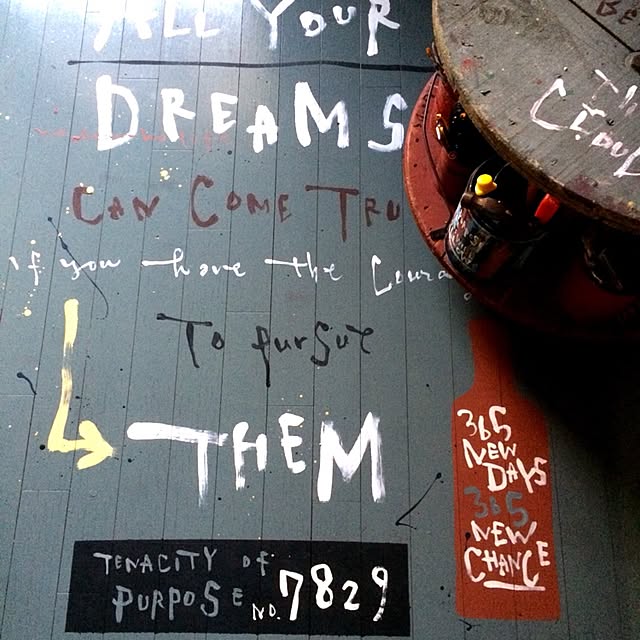 ALL YOUR
DREAMS
CAN COME TRU
if you have the Coura
To pursue
THEM
TENACITY OF
PURPOSE NO. 7829
365
NEW
DAYS
365
NEW
CHANCE
BE